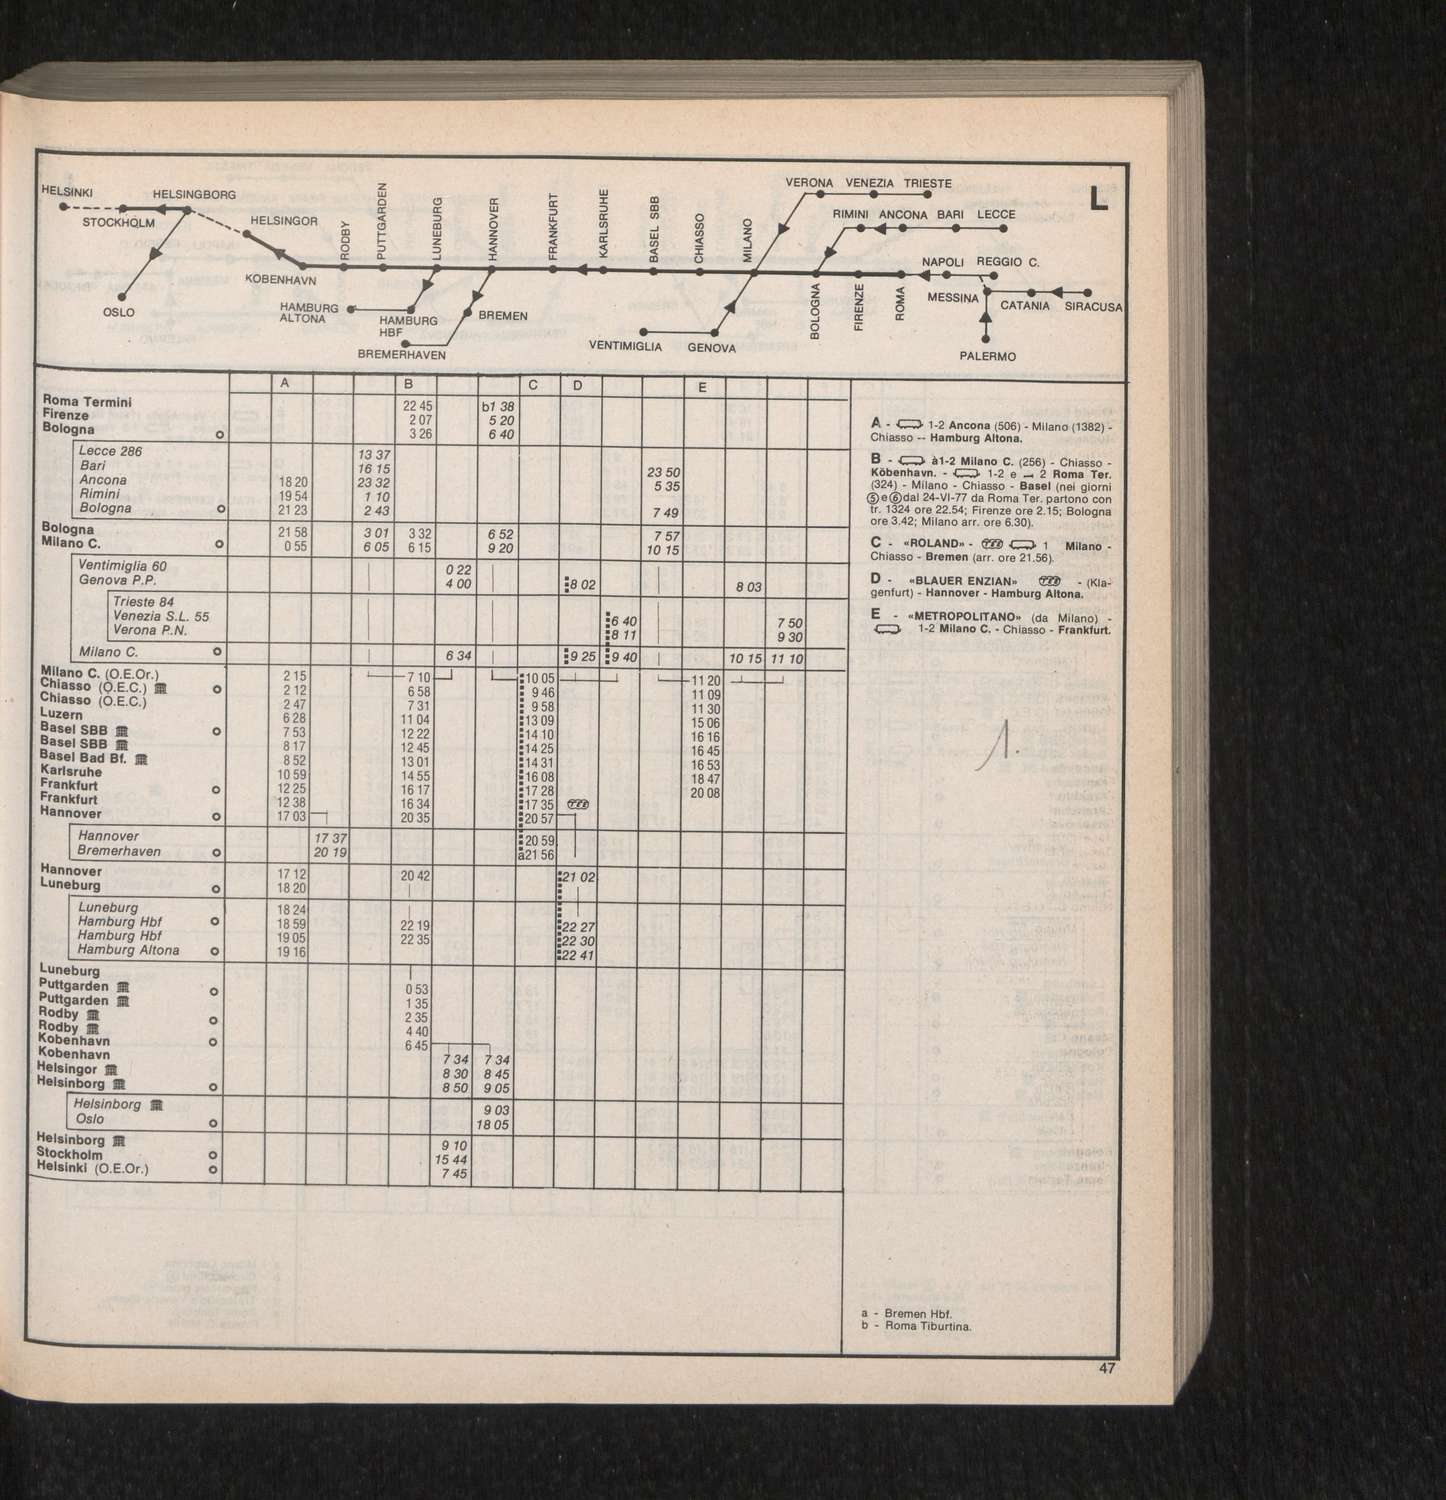 L
HELSINKI
HELSINGBORG
STOCKHOLM
OSLO
HELSINGOR
KOBENHAVN
RODBY
PUTTGARDEN
LUNEBURG
HANNOVER
FRANKFURT
KARLSRUHE
BASEL SBB
CHIASSO
MILANO
HAMBURG
ALTONA
HAMBURG
HBF
BREMEN
BREMERHAVEN
VENTIMIGLIA GENOVA
VERONA VENEZIA TRIESTE
RIMINI ANCONA BARI LECCE
NAPOLI REGGIO C.
BOLOGNA
FIRENZE
ROMA
MESSINA
CATANIA SIRACUSA
PALERMO
A B C D E
Roma Termini 22 45 b1 38
Firenze 2 07 5 20
Bologna 3 26 6 40
Lecce 286 13 37
Bari 16 15 23 50
Ancona 18 20 23 32 5 35
Rimini 19 54 1 10
Bologna 21 23 2 43 7 49
Bologna 21 58 3 01 3 32 6 52 7 57
Milano C. 0 55 6 05 6 15 9 20 10 15
Ventimiglia 60 0 22
Genova P.P. 4 00 8 02 8 03
Trieste 84
Venezia S.L. 55 6 40 7 50
Verona P.N. 8 11 9 30
Milano C. 6 34 9 25 9 40 10 15 11 10
Milano C. (O.E.Or.) 2 15 7 10 10 05 11 20
Chiasso (O.E.C.) 2 12 6 58 9 46 11 09
Chiasso (O.E.C.) 2 47 7 31 9 58 11 30
Luzern 6 28 11 04 13 09 15 06
Basel SBB 7 53 12 22 14 10 16 16
Basel SBB 8 17 12 45 14 25 16 45
Basel Bad Bf. 8 52 13 01 14 31 16 53
Karlsruhe 10 59 14 55 16 08 18 47
Frankfurt 12 25 16 17 17 28 20 08
Frankfurt 12 38 16 34 17 35
Hannover 17 03 20 35 20 57
Hannover 17 37 20 59
Bremerhaven 20 19 a21 56
Hannover 17 12 20 42 21 02
Luneburg 18 20
Luneburg 18 24
Hamburg Hbf 18 59 22 19 22 27
Hamburg Hbf 19 05 22 35 22 30
Hamburg Altona 19 16 22 41
Luneburg
Puttgarden 0 53
Puttgarden 1 35
Rodby 2 35
Rodby 4 40
Kobenhavn 6 45
Kobenhavn 7 34 7 34
Helsingor 8 30 8 45
Helsinborg 8 50 9 05
Helsinborg 9 03
Oslo 18 05
Helsinborg 9 10
Stockholm 15 44
Helsinki (O.E.Or.) 7 45
A - 1-2 Ancona (506) - Milano (1382) -
Chiasso -- Hamburg Altona.
B - à1-2 Milano C. (256) - Chiasso -
Köbenhavn. - 1-2 e 2 Roma Ter.
(324) - Milano - Chiasso - Basel (nei giorni
⑤e⑥dal 24-VI-77 da Roma Ter. partono con
tr. 1324 ore 22.54; Firenze ore 2.15; Bologna
ore 3.42; Milano arr. ore 6.30).
C - «ROLAND» - 1 Milano -
Chiasso - Bremen (arr. ore 21.56).
D - «BLAUER ENZIAN» - (Kla-
genfurt) - Hannover - Hamburg Altona.
E - «METROPOLITANO» (da Milano) -
1-2 Milano C. - Chiasso - Frankfurt.
1.
a - Bremen Hbf.
b - Roma Tiburtina.
47